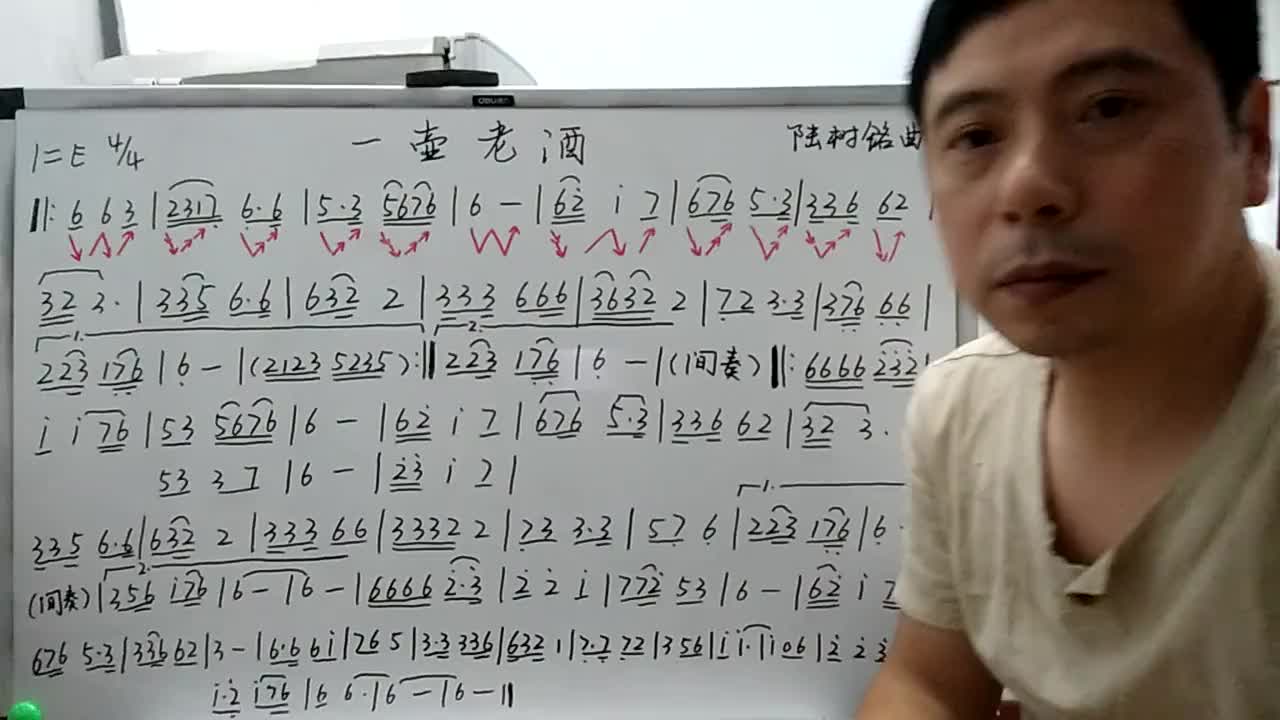 deli
1=E 4/4 一壶老酒 陆树铭曲
‖: 6 6 3 | 2317 6·6 | 5·3 5676 | 6 - | 62 i 7 | 676 5·3 | 336 62 |
32 3· | 335 6·6 | 632 2 | 333 666 | 3632 2 | 72 3·3 | 376 66 |
1. 2.
223 176 | 6 - | (2123 5235) :‖ 223 176 | 6 - | (间奏) ‖: 6666 232 |
i i 76 | 53 5676 | 6 - | 62 i 7 | 676 5·3 | 336 62 | 32 3·
53 3 7 | 6 - | 23 i 7 |
1.
335 6·6 | 632 2 | 333 66 | 3332 2 | 73 3·3 | 57 6 | 223 176 | 6
2.
(间奏) | 356 i76 | 6 - | 6 - | 6666 2·3 | 2 2 i | 772 53 | 6 - | 62 i 7
676 5·3 | 336 62 | 3 - | 6·6 6i | 76 5 | 3·3 336 | 632 1 | 7·7 72 | 3 56 | i i· | i06 | 2 2 3
i·2 i76 | 6 6· | 6 - | 6 - ‖